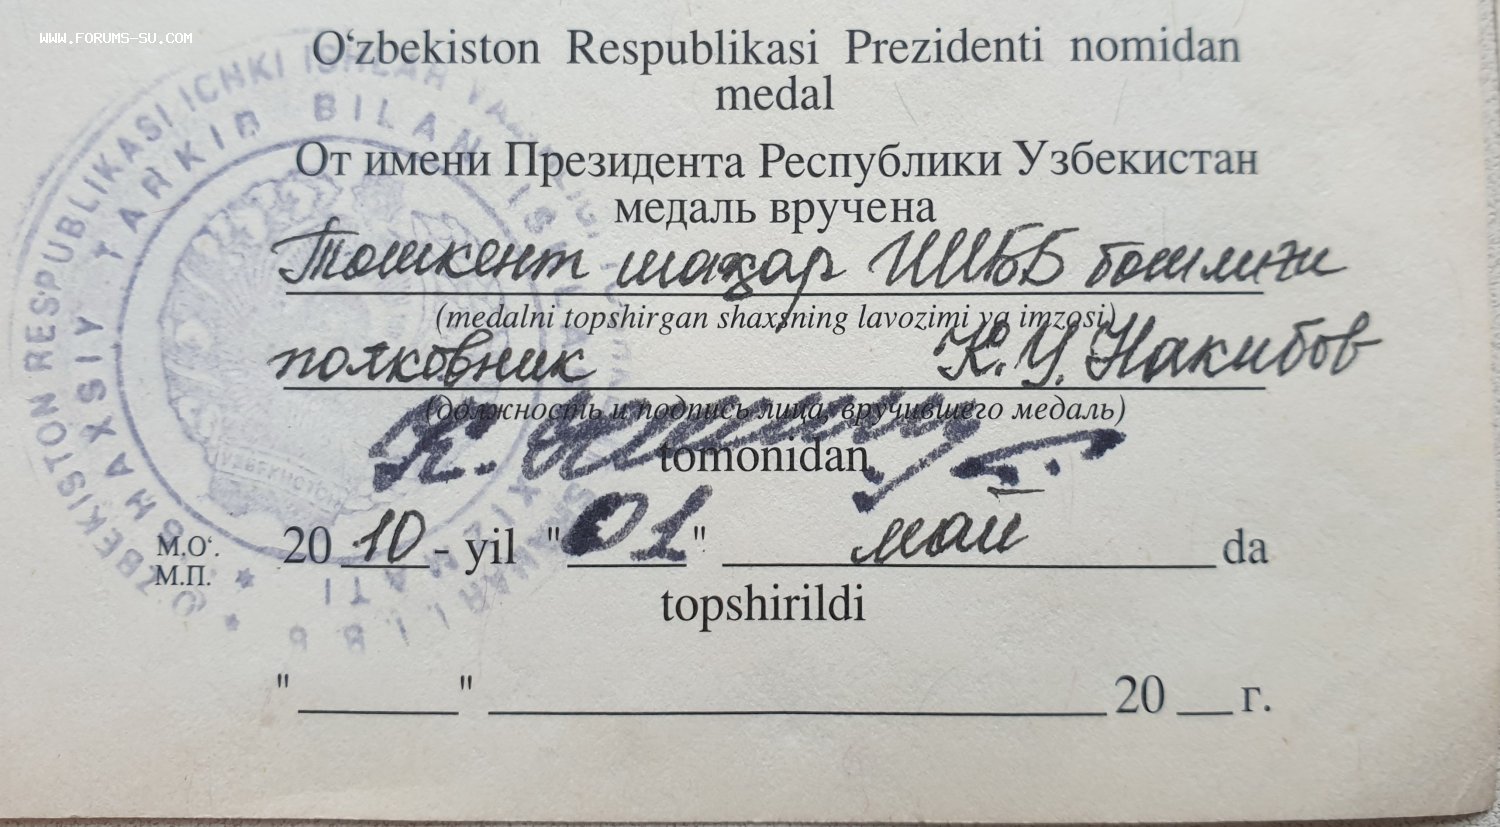 WWW.FORUMS-SU.COM
O‘zbekiston Respublikasi Prezidenti nomidan
medal
От имени Президента Республики Узбекистан
медаль вручена
Тошкент шаҳар ИИББ бошлиғи
(medalni topshirgan shaxsning lavozimi va imzosi)
полковник К.У. Накибов
(должность и подпись лица, вручившего медаль)
tomonidan
2010 - yil "01" май da
М.O‘.
М.П.
topshirildi
"______" ____________ 20 __ г.
O‘ZBEKISTON RESPUBLIKASI ICHKI ISHLAR
MAXSIY TARKIB BILAN